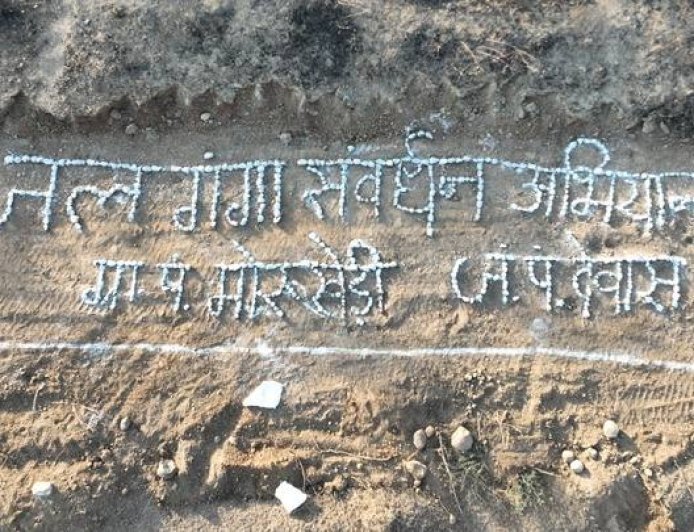 जल गंगा संवर्धन अभियान
ग्रा. पं. मोरूखेडी ज. पं. देवास